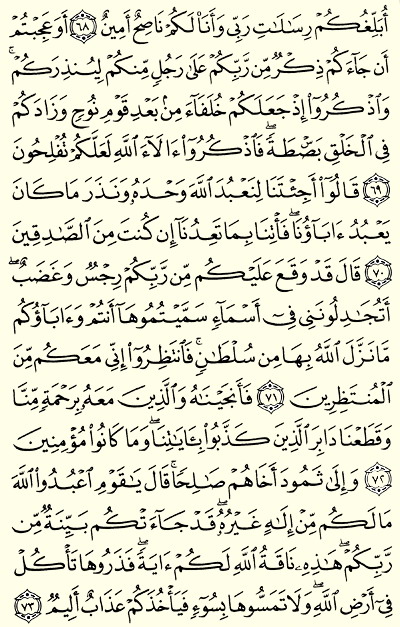 أُبَلِّغُكُمْ رِسَٰلَٰتِ رَبِّى وَأَنَا۠ لَكُمْ نَاصِحٌ أَمِينٌ ٦٨ أَوَعَجِبْتُمْ
أَن جَآءَكُمْ ذِكْرٌ مِّن رَّبِّكُمْ عَلَىٰ رَجُلٍ مِّنكُمْ لِيُنذِرَكُمْ ۚ
وَٱذْكُرُوٓا۟ إِذْ جَعَلَكُمْ خُلَفَآءَ مِنۢ بَعْدِ قَوْمِ نُوحٍ وَزَادَكُمْ
فِى ٱلْخَلْقِ بَصْۜطَةً ۖ فَٱذْكُرُوٓا۟ ءَالَآءَ ٱللَّهِ لَعَلَّكُمْ تُفْلِحُونَ
٦٩ قَالُوٓا۟ أَجِئْتَنَا لِنَعْبُدَ ٱللَّهَ وَحْدَهُۥ وَنَذَرَ مَا كَانَ
يَعْبُدُ ءَابَآؤُنَا ۖ فَأْتِنَا بِمَا تَعِدُنَآ إِن كُنتَ مِنَ ٱلصَّٰدِقِينَ
٧٠ قَالَ قَدْ وَقَعَ عَلَيْكُم مِّن رَّبِّكُمْ رِجْسٌ وَغَضَبٌ ۖ
أَتُجَٰدِلُونَنِى فِىٓ أَسْمَآءٍ سَمَّيْتُمُوهَآ أَنتُمْ وَءَابَآؤُكُم
مَّا نَزَّلَ ٱللَّهُ بِهَا مِن سُلْطَٰنٍ ۚ فَٱنتَظِرُوٓا۟ إِنِّى مَعَكُم مِّنَ
ٱلْمُنتَظِرِينَ ٧١ فَأَنجَيْنَٰهُ وَٱلَّذِينَ مَعَهُۥ بِرَحْمَةٍ مِّنَّا
وَقَطَعْنَا دَابِرَ ٱلَّذِينَ كَذَّبُوا۟ بِـَٔايَٰتِنَا ۖ وَمَا كَانُوا۟ مُؤْمِنِينَ
٧٢ وَإِلَىٰ ثَمُودَ أَخَاهُمْ صَٰلِحًا ۗ قَالَ يَٰقَوْمِ ٱعْبُدُوا۟ ٱللَّهَ
مَا لَكُم مِّنْ إِلَٰهٍ غَيْرُهُۥ ۖ قَدْ جَآءَتْكُم بَيِّنَةٌ مِّن
رَّبِّكُمْ ۖ هَٰذِهِۦ نَاقَةُ ٱللَّهِ لَكُمْ ءَايَةً ۖ فَذَرُوهَا تَأْكُلْ
فِىٓ أَرْضِ ٱللَّهِ ۖ وَلَا تَمَسُّوهَا بِسُوٓءٍ فَيَأْخُذَكُمْ عَذَابٌ أَلِيمٌ ٧٣